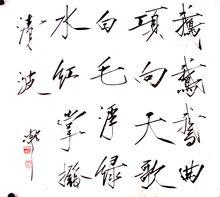 鵝鵝鵝曲
項向天歌
白毛浮綠
水紅掌撥
清波